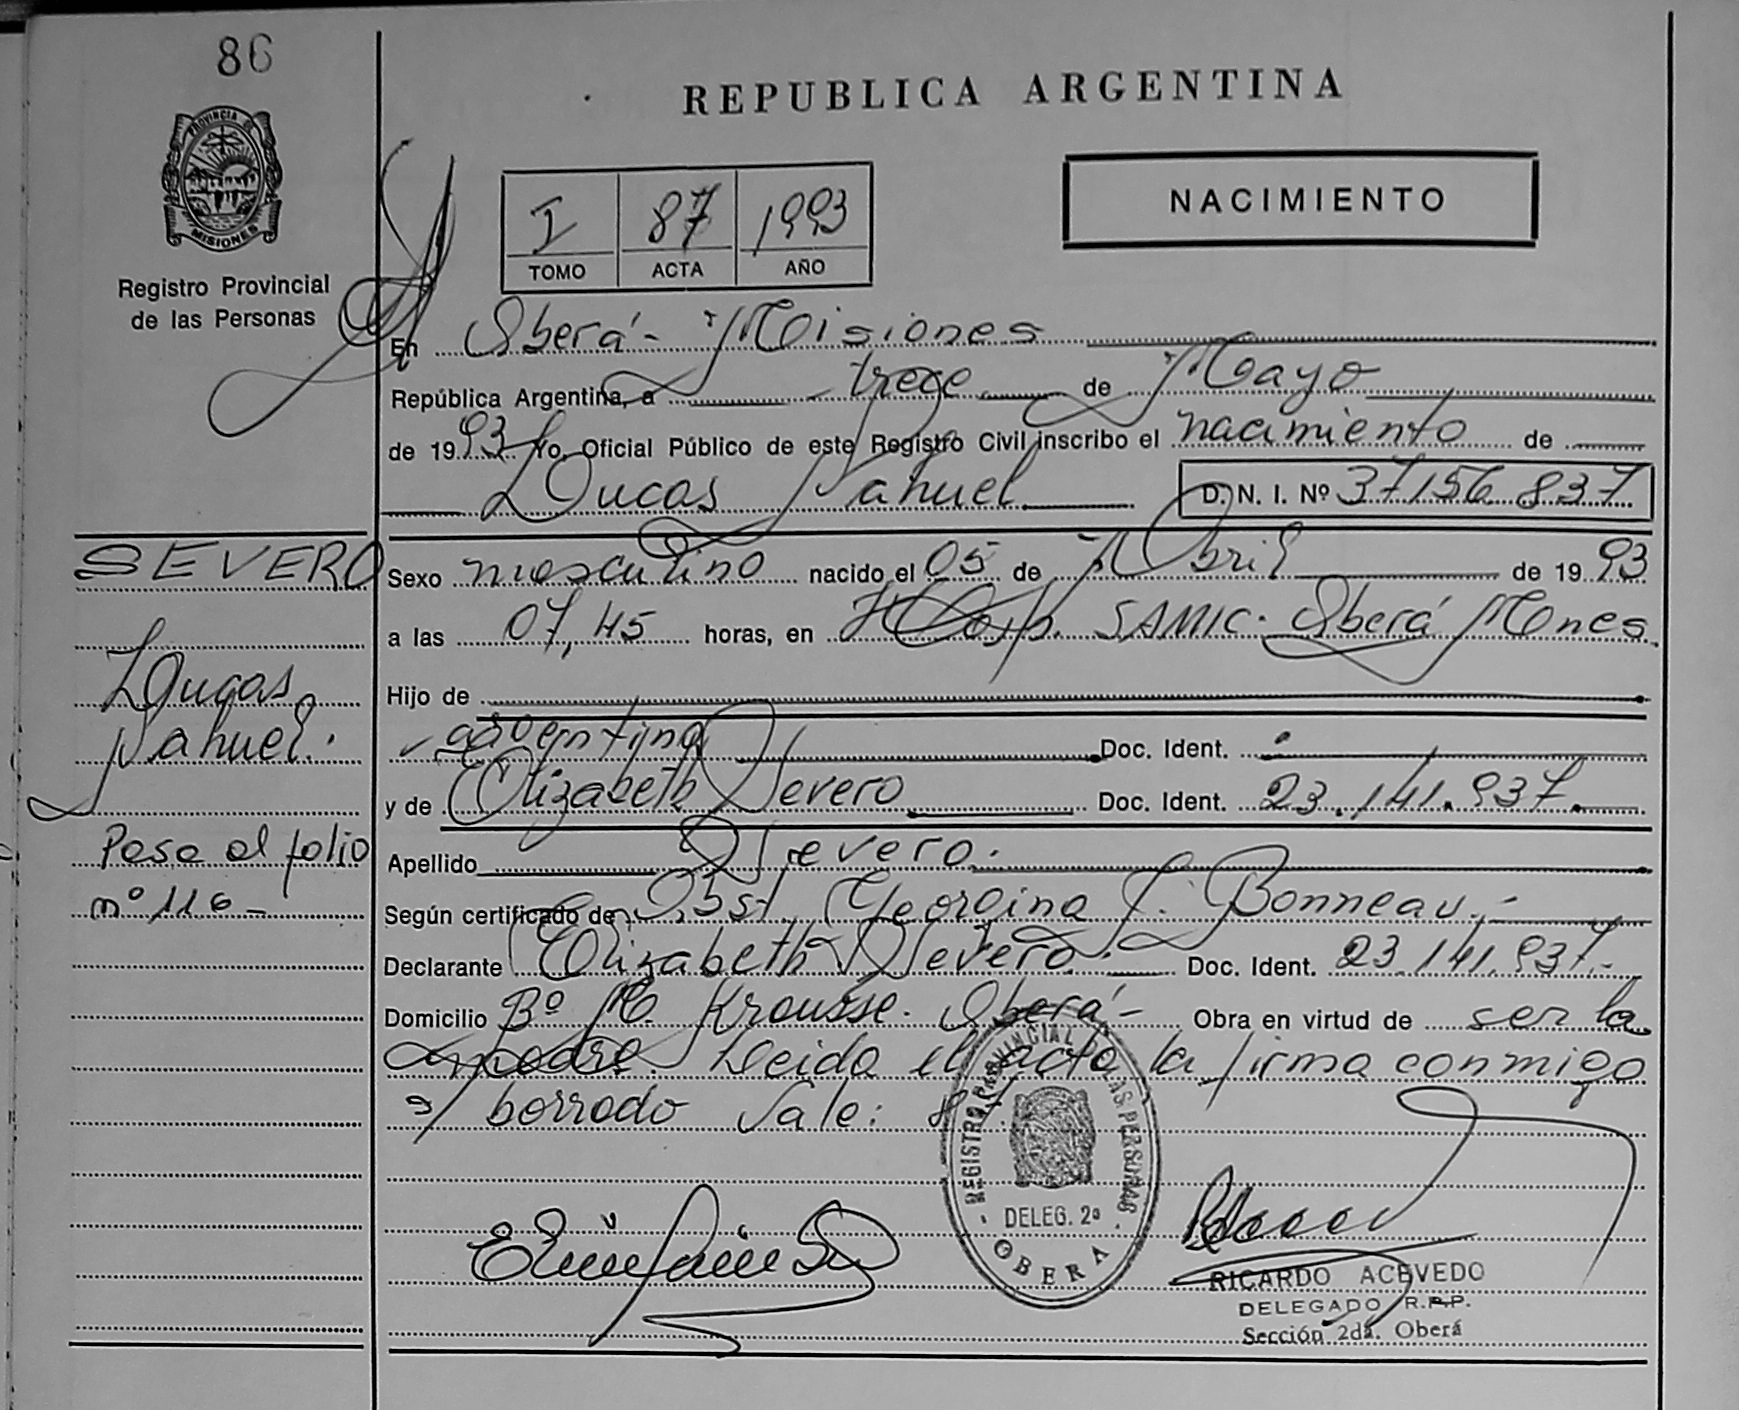 86
REPUBLICA ARGENTINA
PROVINCIA DE
MISIONES
Registro Provincial
de las Personas
I 87 1993
TOMO ACTA AÑO
NACIMIENTO
En Oberá - Misiones
República Argentina, a trece de Mayo
de 1993 Yo, Oficial Público de este Registro Civil inscribo el nacimiento de
Lucas Nahuel D. N. I. Nº 37156 837
SEVERO
Lucas
Nahuel.
Pasa al folio
nº 116-
Sexo masculino nacido el 05 de Abril de 1993
a las 07,45 horas, en Hosp. SAMIC. Oberá Mnes.
Hijo de
argentina Doc. Ident.
y de Elizabeth Severo Doc. Ident. 23.141.937.
Apellido Severo.
Según certificado de Obst. Georgina F. Bonneau.-
Declarante Elizabeth Severo. Doc. Ident. 23.141.937.-
Domicilio Bº M. Krausse. Oberá - Obra en virtud de ser la
madre. Leida el acta la firma conmigo
s/ borrado Vale: 87
REGISTRO PROVINCIAL DE LAS PERSONAS
DELEG. 2ª
OBERA
RICARDO ACEVEDO
DELEGADO R.P.P.
Sección 2da. Oberá